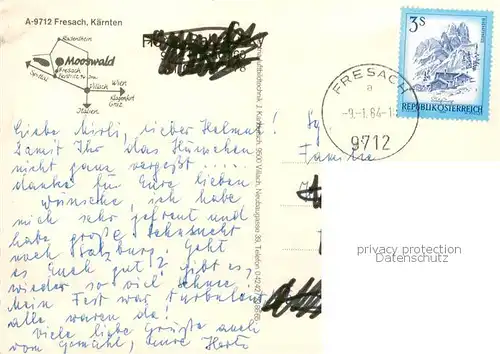 A-9712 Fresach, Kärnten
Radenthein
Mooswald
Fresach
Spittal
Villach
Wien
Klagenfurt
Graz
Italien
Liebe Mirli, lieber Helmut!
Damit Ihr das Häuschen
nicht ganz vergeßt ....
danke für Eure lieben
Wünsche, ich habe
mich sehr gefreut und
habe große Sehnsucht
nach Salzburg. Geht
es Euch gut? Gibt es
wieder so viel Schnee?
Mein Fest war turbulent,
alle waren da!
Viele liebe Grüße auch
vom Gemahl, Eure Herta
9500 Villach, Neubaugasse 39, Telefon
3S
REPUBLIK ÖSTERREICH
FRESACH
a
9712
Familie
privacy protection
Datenschutz